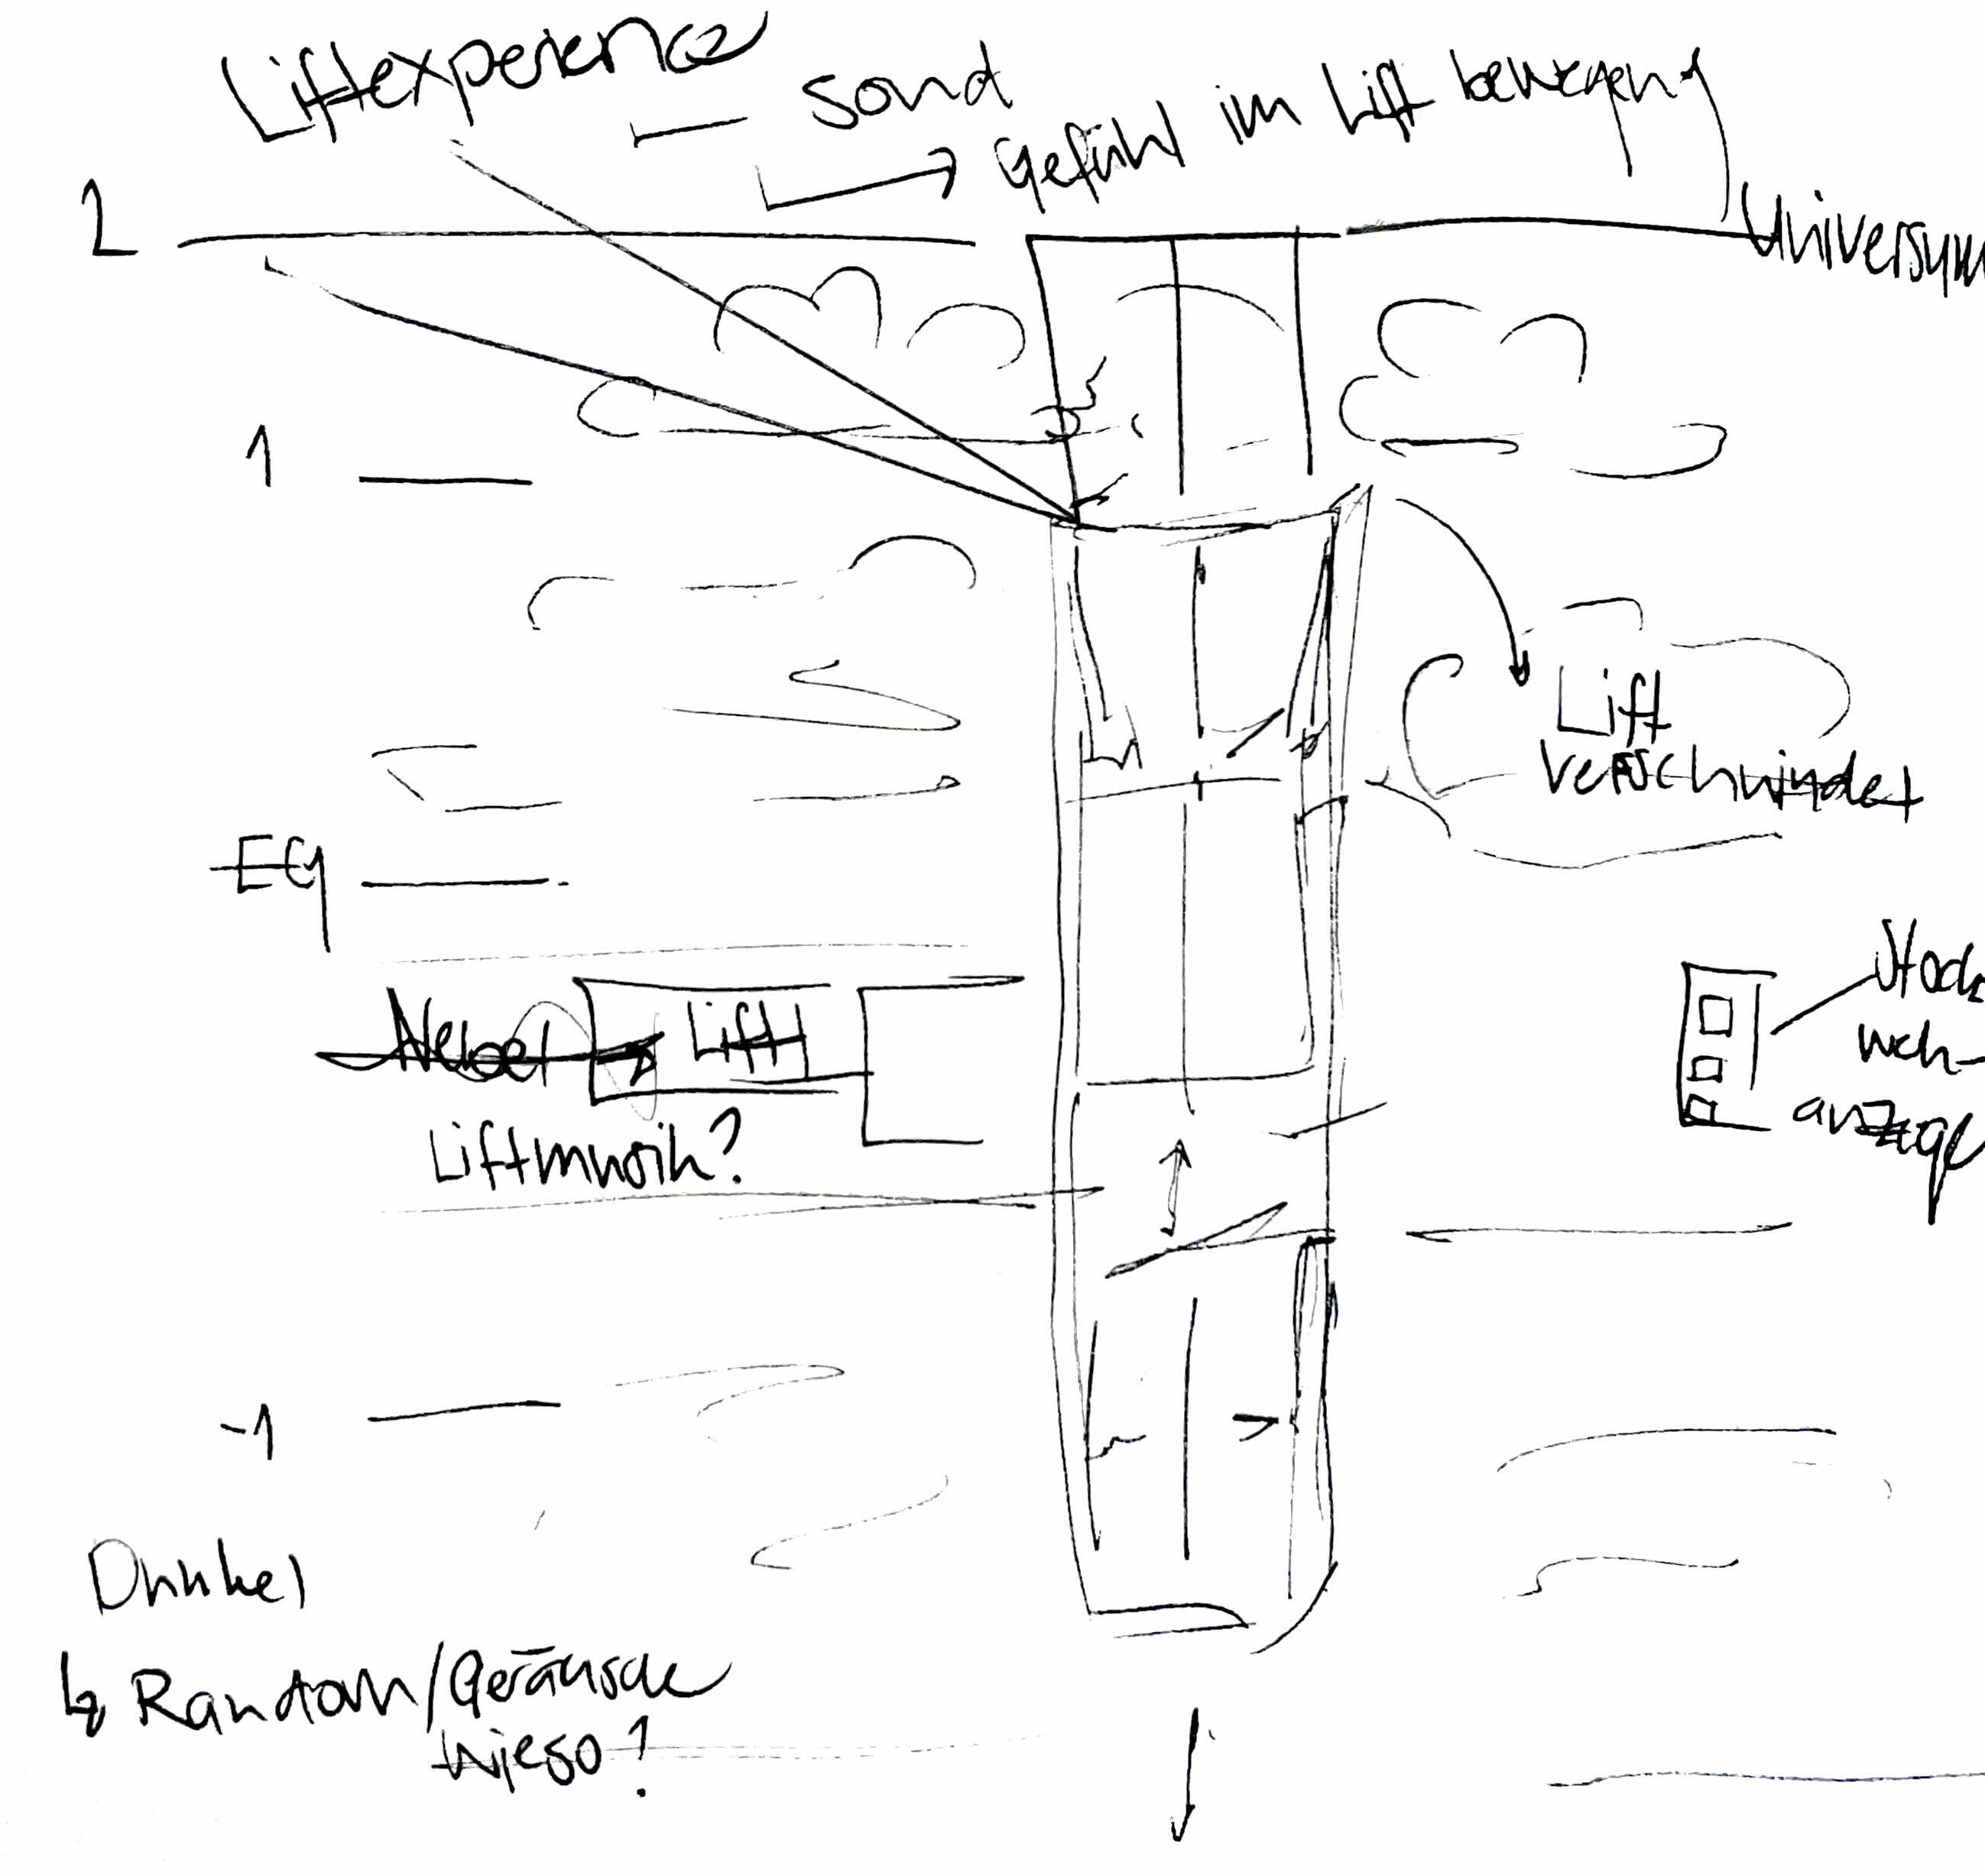 Liftexperience
Sond
Gefühl im Lift bewegung
2
Universum
1
Lift
verschwindet
EG
Lift
Liftmusik?
Stock
wch-
anzeige
-1
Dunkel
↳ Random/Geräusche
wieso?